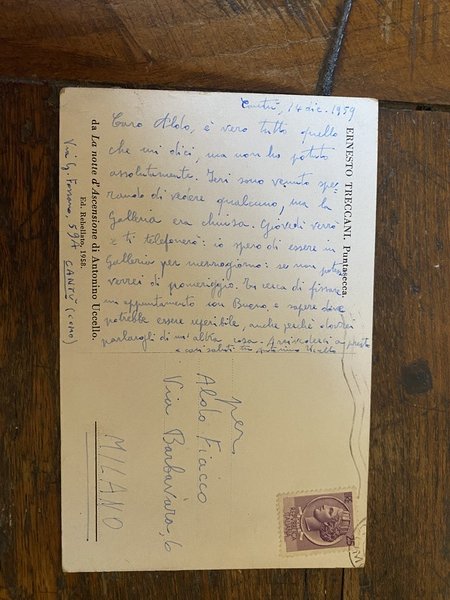 Cantù, 14 dic. 1959
Caro Aldo, è vero tutto quello
che mi dici, ma non ho potuto
assolutamente. Ieri sono venuto spe-
rando di vedere qualcuno, ma la
Galleria era chiusa. Giovedì verrò
e ti telefonerò: io spero di essere in
Galleria per mezzogiorno: se non potrò
verrei di pomeriggio. Tu cerca di fissare
un appuntamento con Buono, e sapere dove
potrebbe essere reperibile, anche perché dovrei
parlargli di un'altra cosa. Arrivederci a presto
e cari saluti tuo Antonino Uccello
ERNESTO TRECCANI. Puntasecca.
da La notte d'Ascensione di Antonino Uccello.
Ed. Rebellato, 1958.
Via G. Fossano, 59A CANTÙ (COMO)
per
Aldo Fiacco
Via Barbavara, 6
MILANO
25